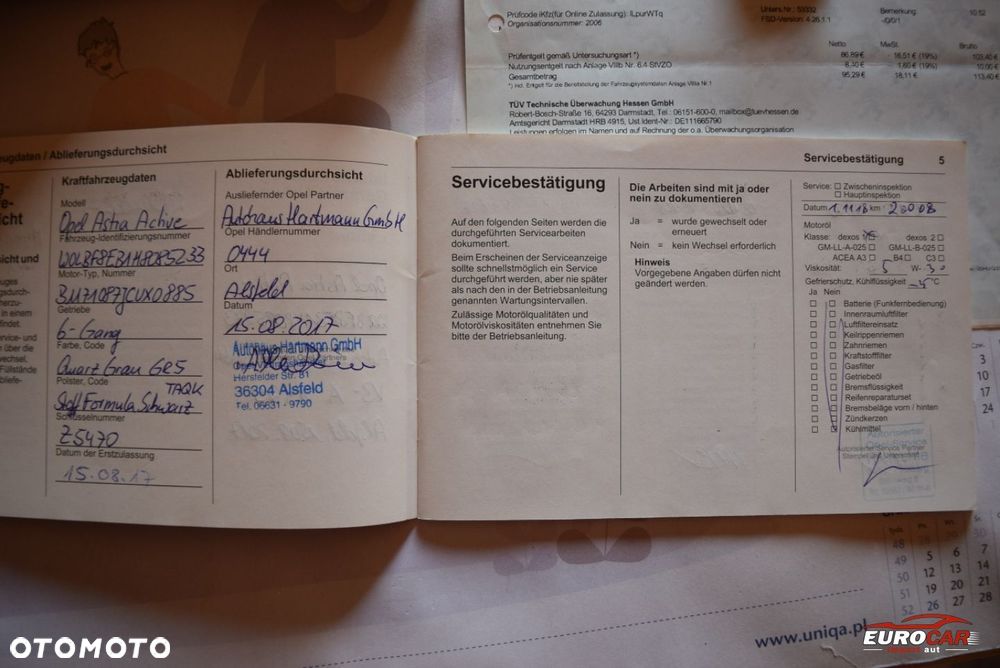 Prüfcode iKfz(für Online Zulassung): ILpurWTq
Organisationsnummer: 2006
Bemerkung
10:52
FSD-Version: 4.26.1.1
Netto MwSt. Brutto
Prüfentgelt gemäß Untersuchungsart *) 86,89 € 16,51 € (19%) 103,40 €
Nutzungsentgelt nach Anlage VIIIb Nr. 6.4 StVZO 8,40 € 1,60 € (19%) 10,00 €
Gesamtbetrag 95,29 € 18,11 € 113,40 €
*) incl. Entgelt für die Bereitstellung der Fahrzeugsystemdaten Anlage VIIIa Nr.1
TÜV Technische Überwachung Hessen GmbH
Robert-Bosch-Straße 16, 64293 Darmstadt, Tel.: 06151-600-0, mailbox@tuevhessen.de
Amtsgericht Darmstadt HRB 4915, Ust.Ident-Nr.: DE111665790
Leistungen erfolgen im Namen und auf Rechnung der o.a. Überwachungsorganisation
eugdaten / Ablieferungsdurchsicht
Kraftfahrzeugdaten
Modell
Opel Astra Active
Fahrzeug-Identifizierungsnummer
W0LBF8EB1H8085233
Motor-Typ, Nummer
Getriebe
6-Gang
Farbe, Code
Quarz Grau GR5
Polster, Code
TAQK
Stoff Formula Schwarz
Schlüsselnummer
Z5470
Datum der Erstzulassung
15.08.17
Ablieferungsdurchsicht
Ausliefernder Opel Partner
Autohaus Hartmann GmbH
Opel Händlernummer
0444
Ort
Alsfeld
Datum
15.08.2017
Autohaus Hartmann GmbH
Hersfelder Str. 81
36304 Alsfeld
Tel. 06631 - 9790
Servicebestätigung 5
Servicebestätigung
Auf den folgenden Seiten werden die
durchgeführten Servicearbeiten
dokumentiert.
Beim Erscheinen der Serviceanzeige
sollte schnellstmöglich ein Service
durchgeführt werden, aber nie später
als nach den in der Betriebsanleitung
genannten Wartungsintervallen.
Zulässige Motorölqualitäten und
Motorölviskositäten entnehmen Sie
bitte der Betriebsanleitung.
Die Arbeiten sind mit ja oder
nein zu dokumentieren
Ja = wurde gewechselt oder
erneuert
Nein = kein Wechsel erforderlich
Hinweis
Vorgegebene Angaben dürfen nicht
geändert werden.
Service: Zwischeninspektion
Hauptinspektion
Datum 1.11.18 km 28008
Motoröl
Klasse: dexos dexos 2
GM-LL-A-025 GM-LL-B-025
ACEA A3 B4 C3
Viskosität: 5 W- 30
Gefrierschutz, Kühlflüssigkeit °C
Ja Nein
Batterie (Funkfernbedienung)
Innenraumluftfilter
Luftfiltereinsatz
Keilrippenriemen
Zahnriemen
Kraftstofffilter
Gasfilter
Getriebeöl
Bremsflüssigkeit
Reifenreparaturset
Bremsbeläge vorn / hinten
Zündkerzen
Kühlmittel
Autorisierter
Opel-Service
Autorisierter Service Partner
Stempel und Unterschrift
3
10
17
24
48
49 5 6 7
50 12 13 14
51 19 20 21
52 26 27 28
www.uniqa.pl
OTOMOTO
EUROCAR
import aut